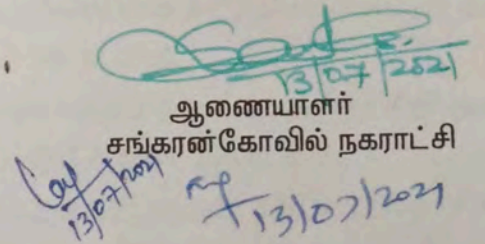 13/07/2021
ஆணையாளர்
சங்கரன்கோவில் நகராட்சி
13/07/2021
13/07/2021